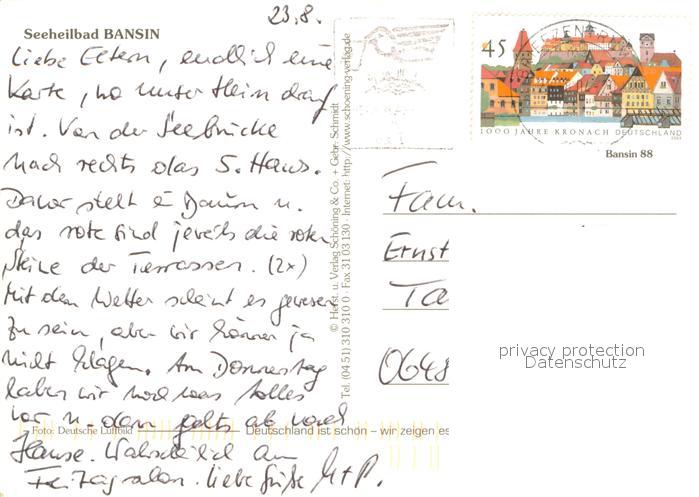 23.8.
Seeheilbad BANSIN
Liebe Eltern, endlich eine
Karte, wo unser Heim drauf
ist. Von der Seebrücke
nach rechts das 5. Haus.
Davor steht e Baum u.
das rote sind jeweils die roten
Steine der Terrassen. (2x)
Mit dem Wetter scheint es gewesen
zu sein, aber wir können ja
nicht klagen. Am Donnerstag
haben wir noch was tolles
vor u. dann geht's ab nach
Hause. Wahrscheinlich am
Freitag schon. Liebe Grüße M+P.
Foto: Deutsche Luftbild
Deutschland ist schön – wir zeigen es
© Herst. u. Verlag Schöning & Co. + Gebr. Schmidt
Tel. (04 51) 310 310 0 · Fax 31 03 130 · Internet: http://www.schoening-verlag.de
45
1000 JAHRE KRONACH DEUTSCHLAND
Bansin 88
Fam.
Ernst
Ta
0648
privacy protection
Datenschutz